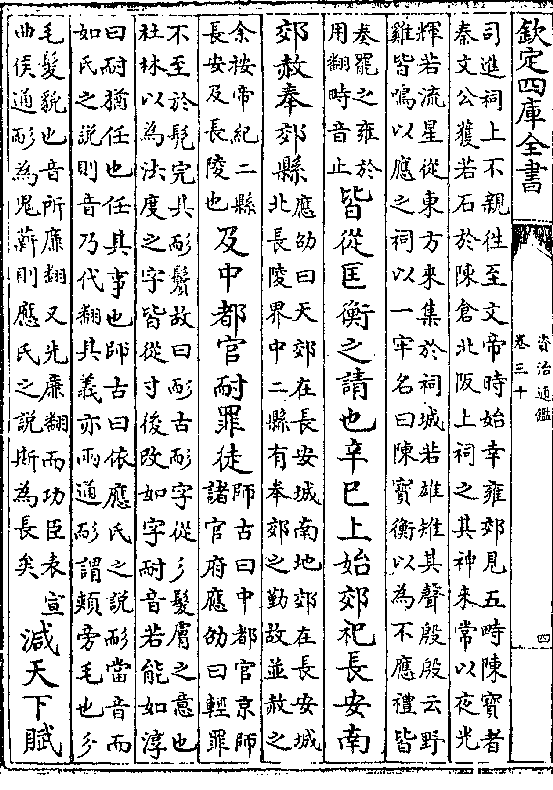 欽定四庫全書
資治通鑑
卷三十
四
司進祠上不親往至文帝時始幸雍郊見五時陳寳者
秦文公獲若石於陳倉北阪上祠之其神来常以夜光
輝若流星從東方来集於祠城若雄雉其聲殷殷云野
雞皆鳴以應之祠以一牢名曰陳寳衡以為不應禮皆
奏罷之雍於
用翻時音止
皆從匡衡之請也辛巳上始郊祀長安南
郊赦奉郊縣
應劭曰天郊在長安城南地郊在長安城
北長陵界中二縣有奉郊之勤故並赦之
余按帝紀二縣
長安及長陵也
及中都官耐罪徒
師古曰中都官京師
諸官府應劭曰輕罪
不至於髡完其耏鬢故曰耏古耏字從彡髮膚之意也
杜林以為法度之字皆從寸後改如字耐音若能如淳
曰耐猶任也任其事也師古曰依應氏之説耏當音而
如氏之説則音乃代翻其義亦兩通耏謂頰旁毛也彡
毛髮貌也音所廉翻又先廉翻而功臣表宣
曲侯通耏為鬼薪則應氏之説斯為長矣
減天下賦